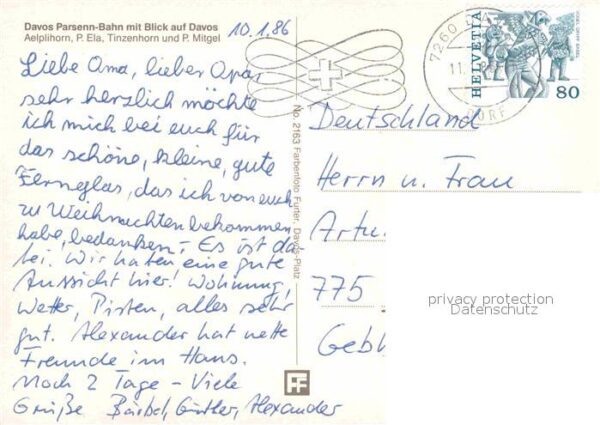 Davos Parsenn-Bahn mit Blick auf Davos
Aelplihorn, P. Ela, Tinzenhorn und P. Mitgel
10.1.86
Liebe Oma, lieber Opa,
sehr herzlich möchte
ich mich bei euch für
das schöne, kleine, gute
Fernglas, das ich von euch
zu Weihnachten bekommen
habe, bedanken. – Es ist da
bei. Wir haben eine gute
Aussicht hier! Wohnung,
Wetter, Pisten, alles sehr
gut. Alexander hat nette
Freunde im Haus.
Noch 2 Tage – Viele
Grüße Bärbel, Günther, Alexander
No. 2163 Farbenfoto Furter, Davos-Platz
7260
11.
DORF
HELVETIA
80
Deutschland
Herrn u. Frau
Artu
775
Gebh
privacy protection
Datenschutz